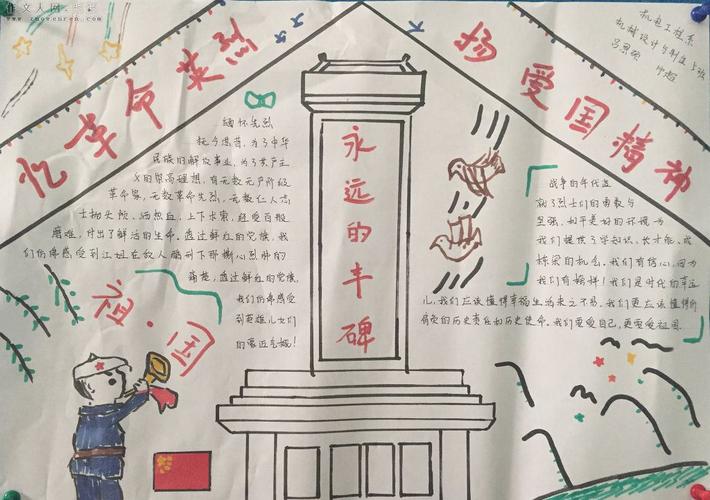 作文人网
www.zuowenren.com
忆革命英烈
扬爱国精神
机电工程系
永远的丰碑
缅怀先烈
抚今思昔,为了中华
民族的解放事业,为了共产主
义的崇高理想,有无数无产阶级
革命家,无数革命先烈,无数仁人志
士抛头颅,洒热血,上下求索,经受百般
磨难,付出了鲜活的生命。透过鲜红的党旗,我
们仿佛感受到江姐在敌人酷刑下那撕心烈肺的
痛楚,透过鲜红的党旗,
我们仿佛感受
到英雄儿女们
的豪迈气慨!
战争的年代造
就了烈士们的勇敢与
坚强,和平美好的环境为
我们提供了学知识、长才能、成
栋梁的机会。我们有信心,因为
我们有榜样!我们是时代的幸运
儿,我们应该懂得幸福生活来之不易,我们更应该懂得所
肩负的历史责任和历史使命,我们要爱自己,更要爱祖国
祖·国